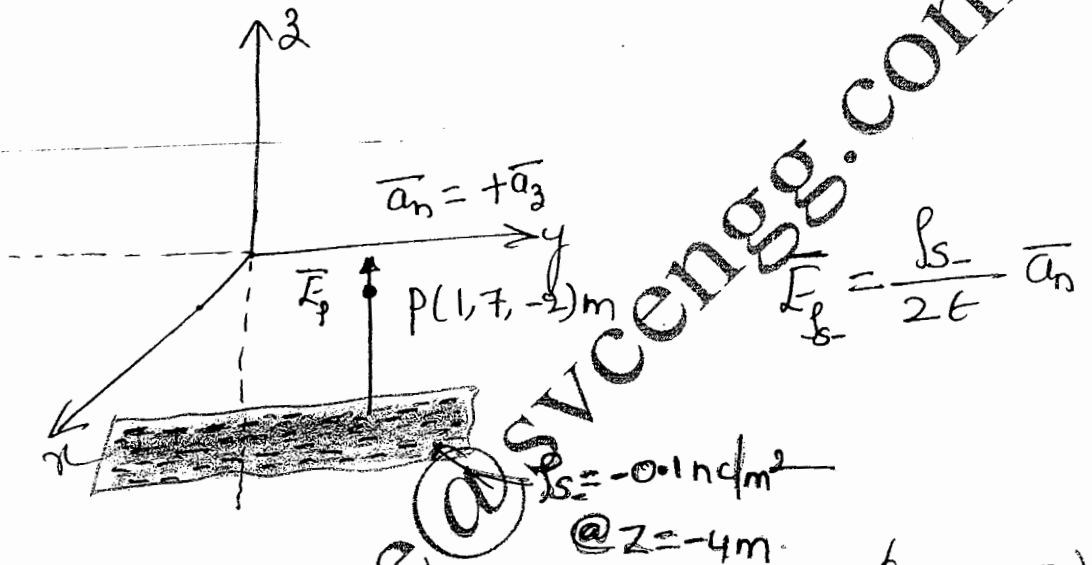 z
a̅n = +a̅z
y
E̅p
P(1, 7, -2)m
E̅ρs- = ρs- / 2ε a̅n
x
ρs- = -0.1nc/m²
@ Z = -4m
@svcengg.com